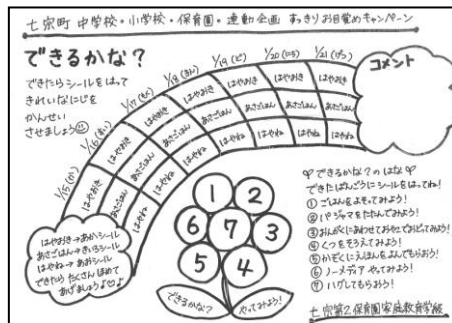 七宗町 中学校・小学校・保育園・連動企画 すっきりお目覚めキャンペーン
できるかな？
できたらシールをはって
きれいなにじを
かんせい
させましょう
1/15(か)
1/16(すい)
1/17(もく)
1/18(きん)
1/19(ど)
1/20(にち)
1/21(げつ)
はやおき
あさごはん
はやね
はやおき
あさごはん
はやね
はやおき
あさごはん
はやね
はやおき
あさごはん
はやね
はやおき
あさごはん
はやね
はやおき
あさごはん
はやね
はやおき
あさごはん
はやね
コメント
はやおき→あかシール
あさごはん→きいろシール
はやね→あおシール
できたら たくさん ほめて
あげましょう♪
1
2
3
4
5
6
7
できるかな？
やってみよう！
できるかな？のはな
できたばんごうにシールをはってね！
① ごはんをよそってみよう！
② パジャマをたたんでみよう！
③ おんがくにあわせておやこでおどってみよう！
④ くつをそろえてみよう！
⑤ かぞくにえほんをよんでもらおう！
⑥ ノーメディア やってみよう！
⑦ ハグしてもらおう！
七宗第2保育園家庭教育学級